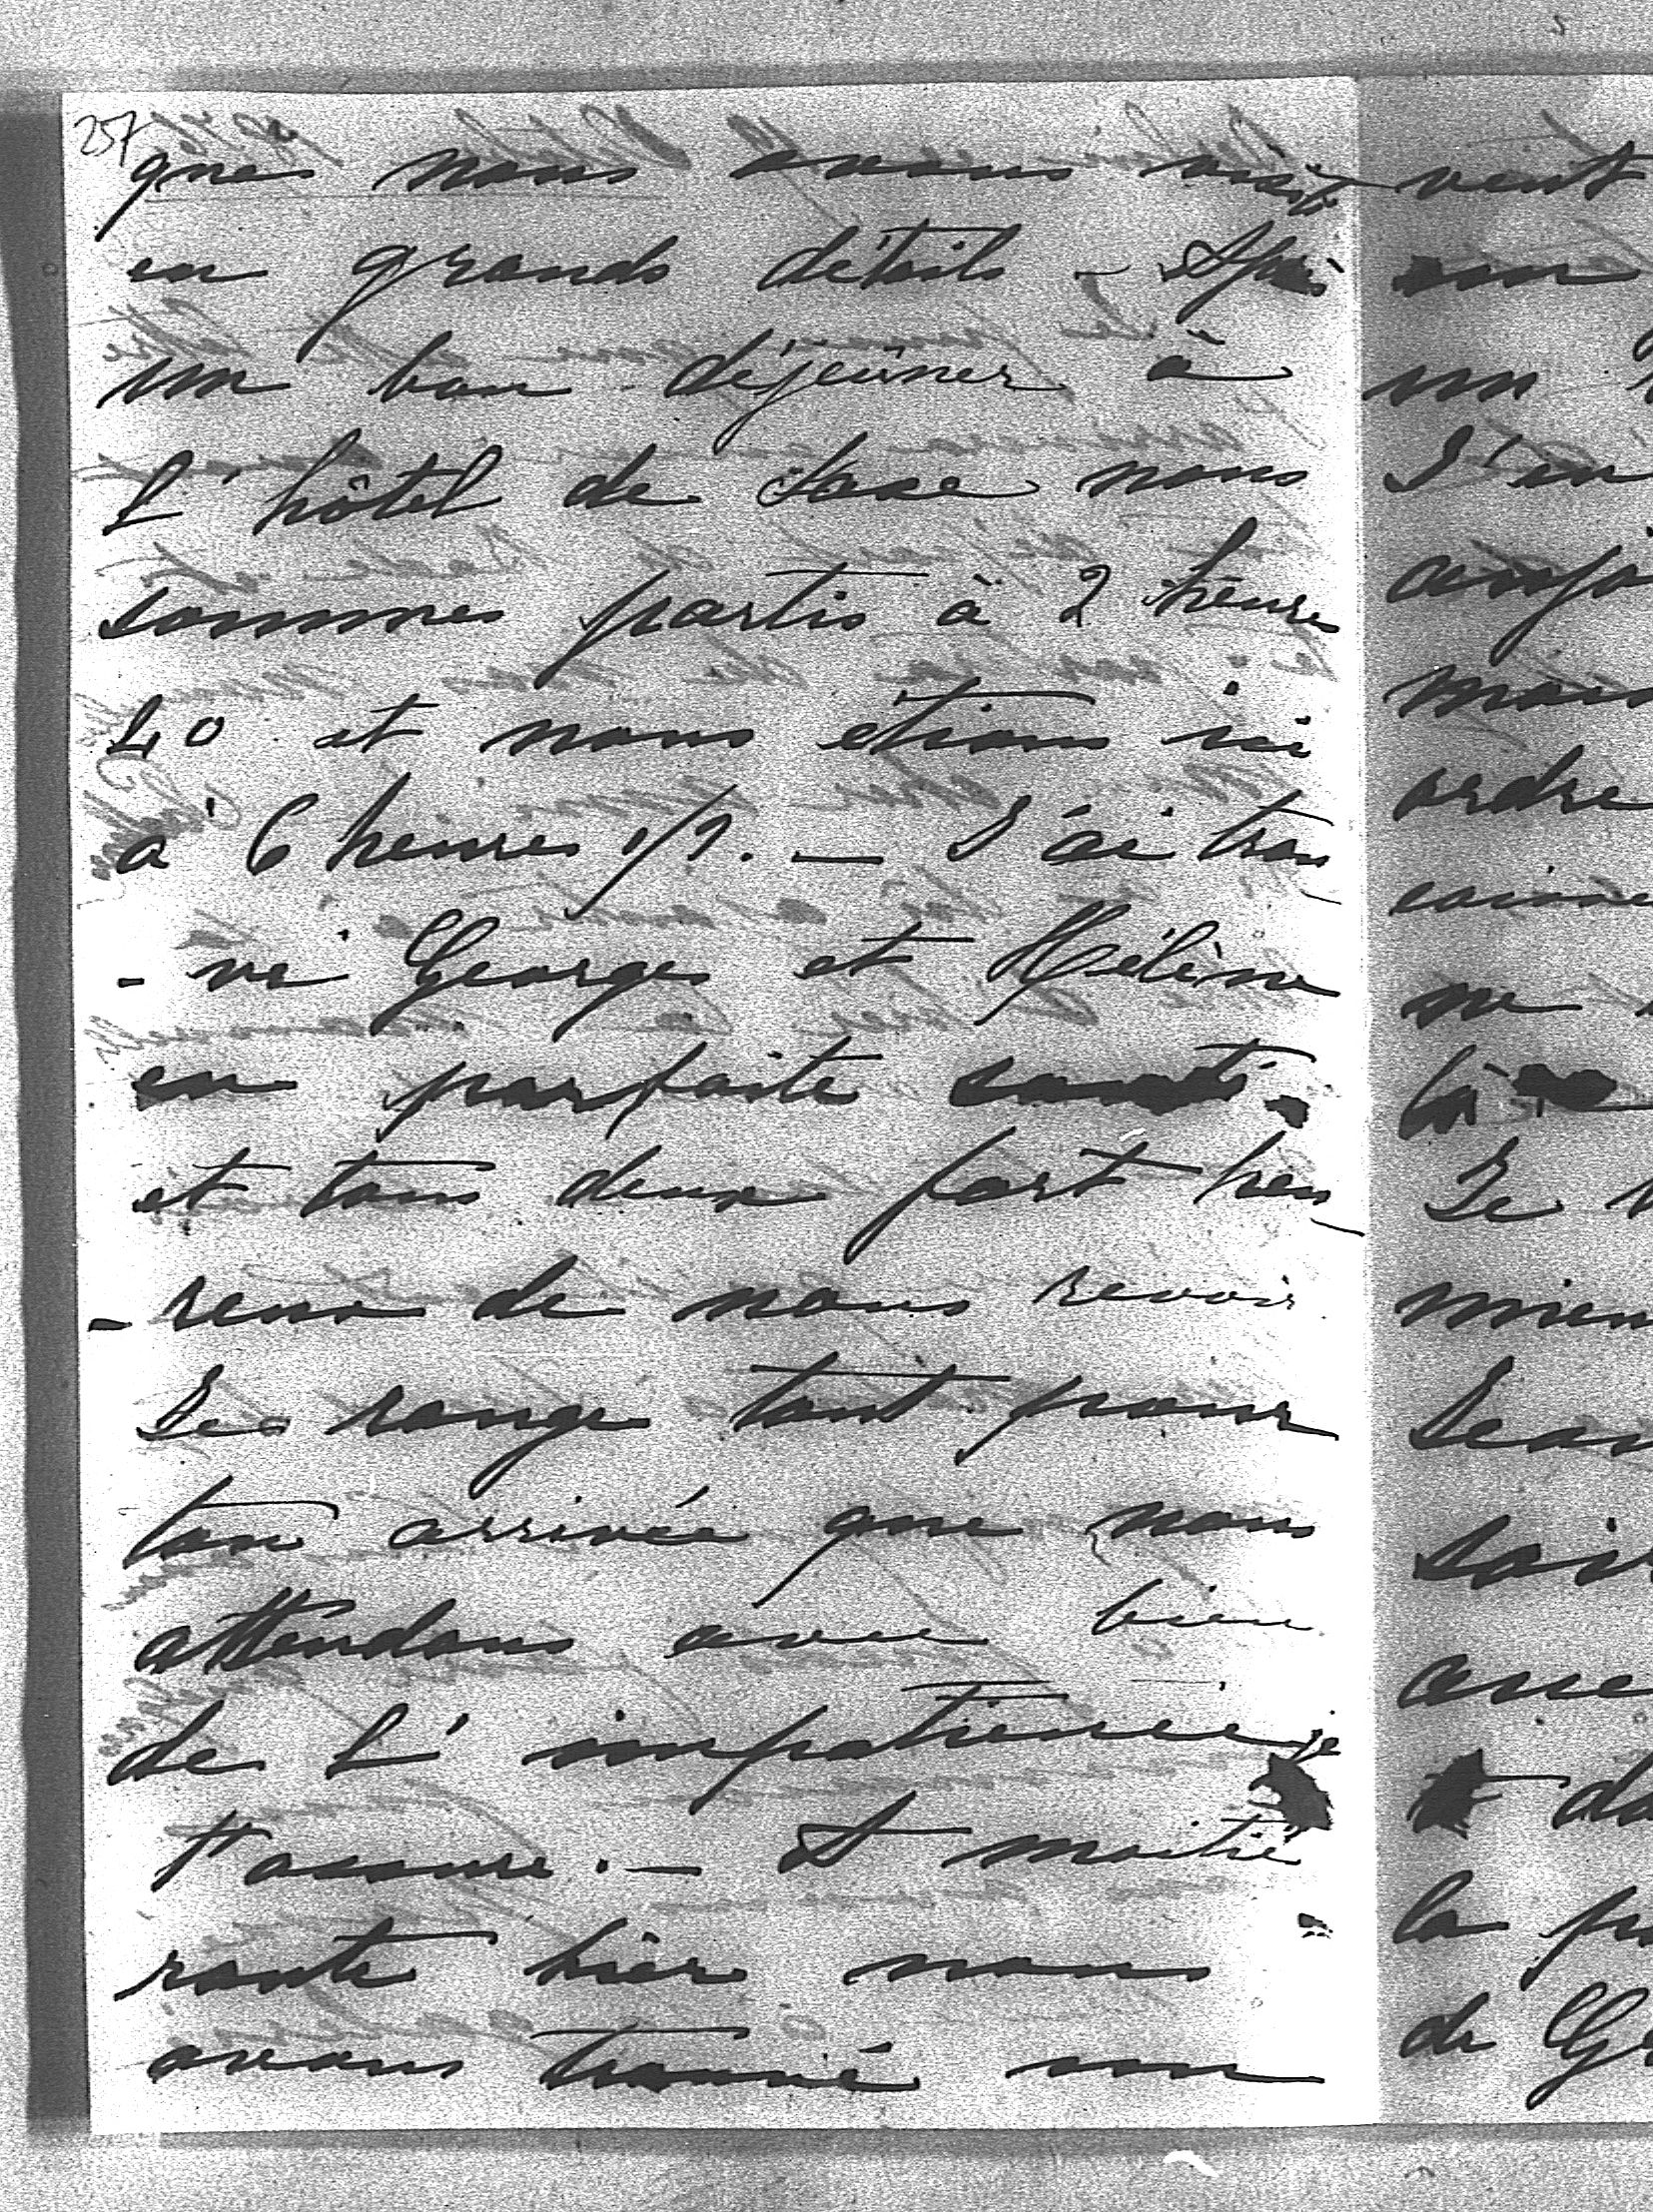 257
que nous avons visité
en grands détails - Après
un bon déjeuner à
l'hôtel de Saxe nous
sommes partis à 2 heures
40 et nous étions ici
à 6 heures 1/2. — J'ai trou
- vé Georges et Hélène
en parfaite santé -
et tous deux fort heu
- reux de nous revoir.
Je range tout pour
ton arrivée que nous
attendons avec bien
de l'impatience je
t'assure. — A moitié
route hier nous
avons trouvé un
vent
un
un
J'en
ampo
mais
ordre
caisse
ne
là
Je
mien
Jean
soir
asse
da
la po
de Ge